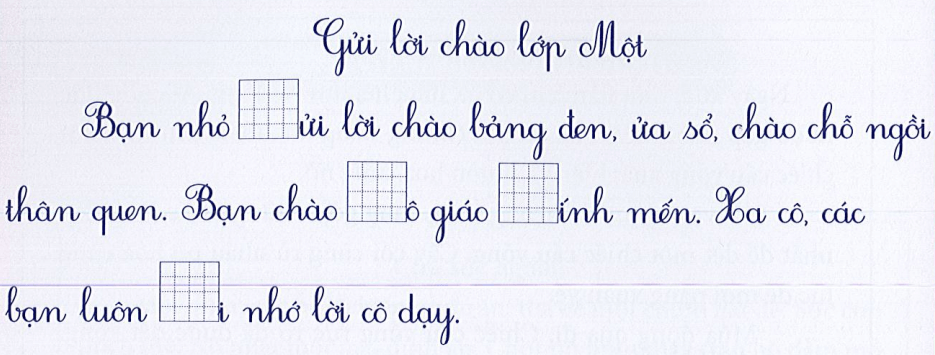 Gửi lời chào lớp Một
Bạn nhỏ ửi lời chào bảng đen, ửa sổ, chào chỗ ngồi
thân quen. Bạn chào ô giáo ính mến. Xa cô, các
bạn luôn i nhớ lời cô dạy.